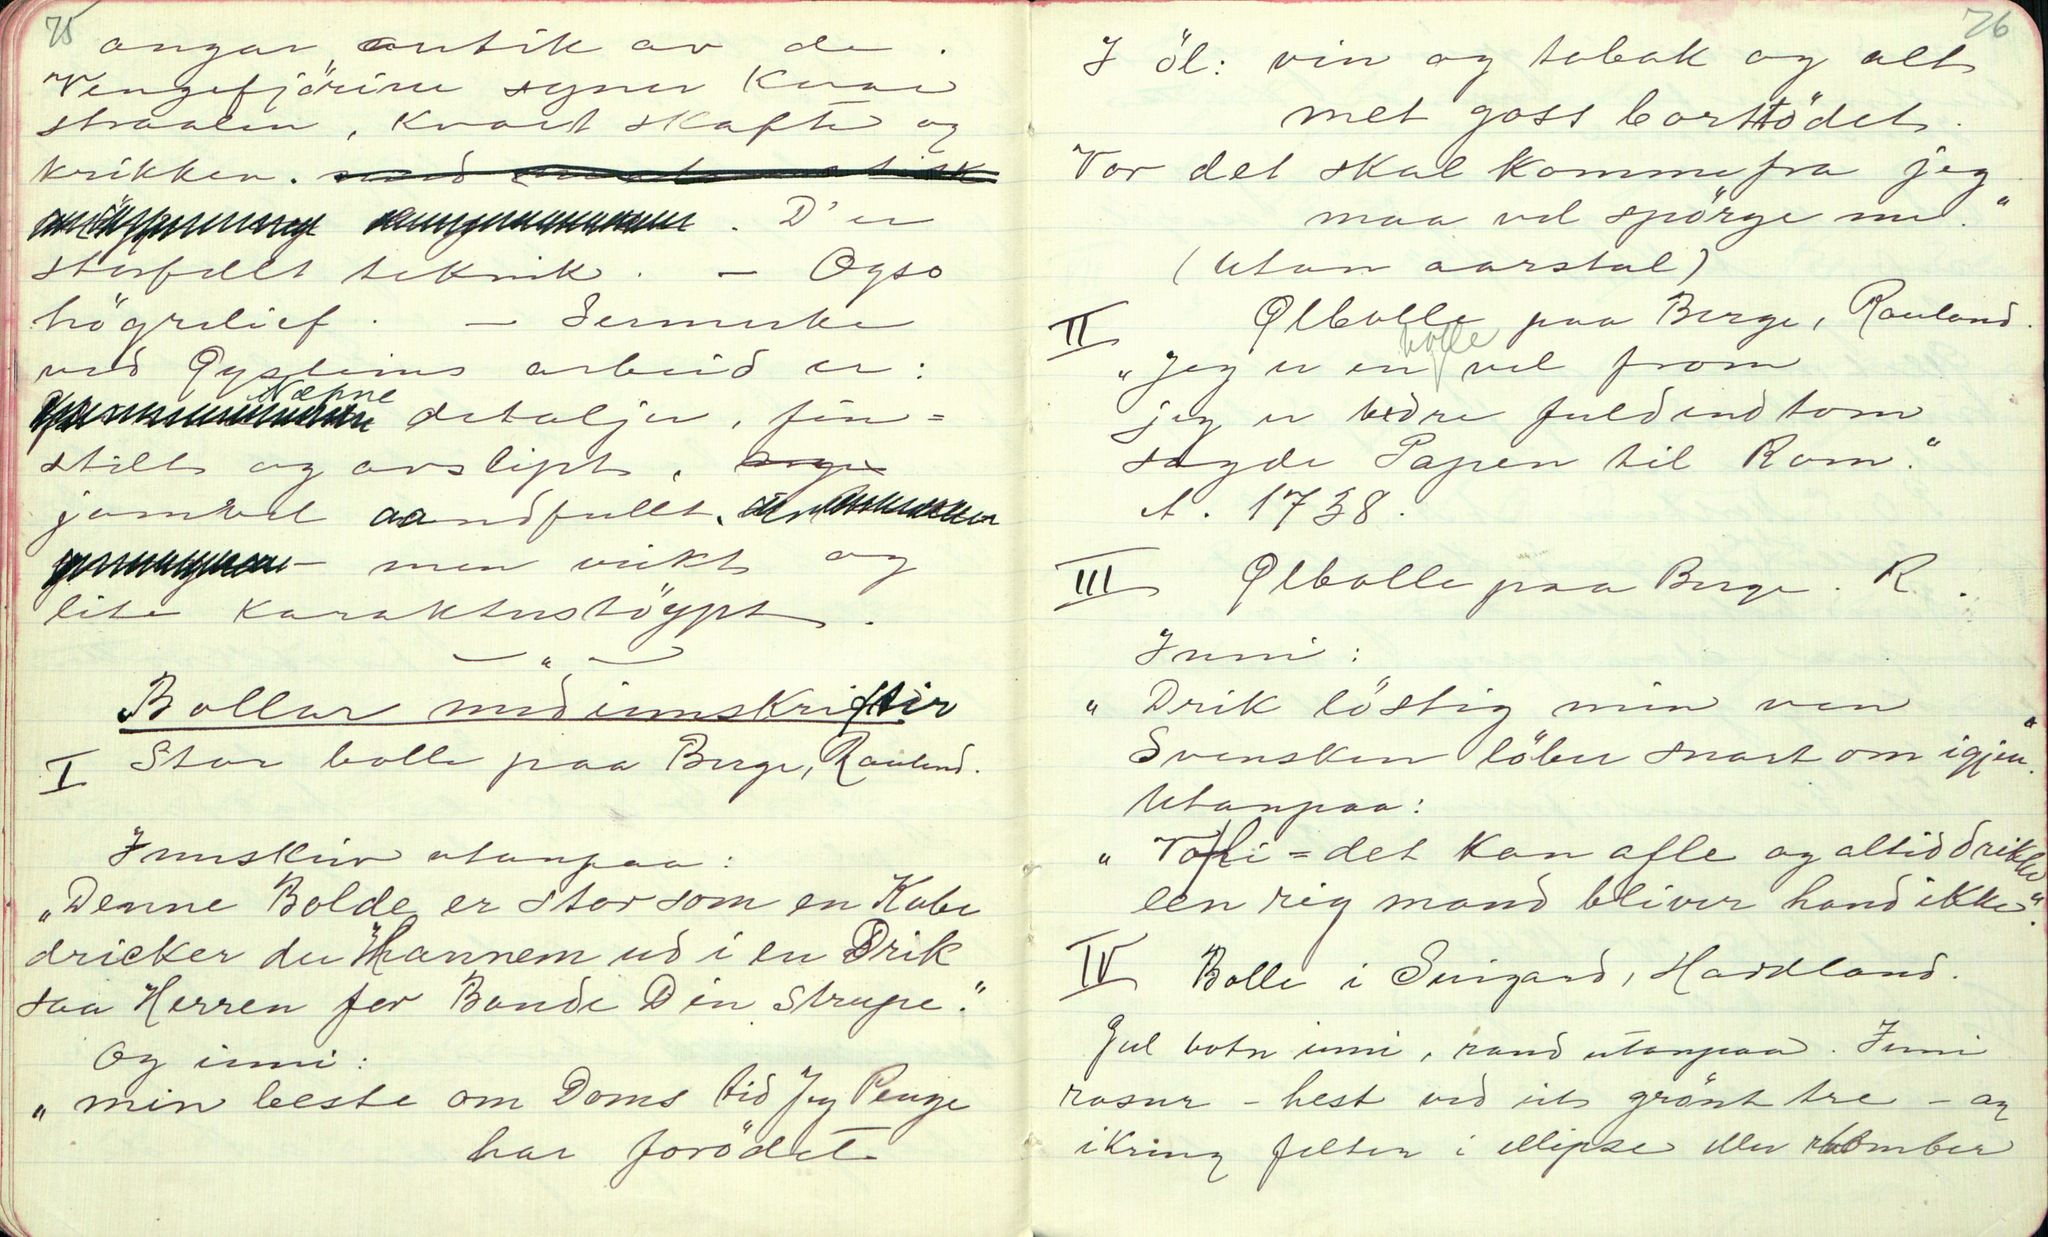 75
angar antik av de.
Vengefjörine syner kvar
straalen, kvart skaft og
krikken.
. D'er
storfelt teknik. — Ogso
högrelief. — Sermerke
ved Øysteins arbeid er:
Næpne detaljer, fin=
stilt og avslipt,
jamvel aandfullt,
— men veikt og
lite karakterstøypt.
— " —
Bollar med innskrifter
I Stor bolle paa Berge, Rauland.
Innskriv utanpaa:
"Denne Bolde er stor som en Kube
dricker du Hannem ud i en Drik
saa Herren for Bande Din Strupe."
Og inni:
"min beste om Doms tid Jeg Penge
har forödet
76
I öl: vin og tobak og alt
met goss bortödet.
Vor det skal komme fra jeg
maa vel spörge me."
(Utan aarstal)
II Ølbolle paa Berge, Rauland.
bolle
"Jeg er en vel from
jeg er bedre fuld end tom
sagde Papen til Rom."
A. 1738.
III Ølbolle paa Berge. R.
Inni:
"Drik löstig min ven
Svensken löber snart om igjen."
Utanpaa:
" det kan afle og altid drikke
een rig mand bliver hand ikke".
IV Bolle i Suigard, Havdland.
Gul botn inni, rand utanpaa. Inni
rosur – hest ved eit grönt tre – og
ikring felter i ellipse eller romber